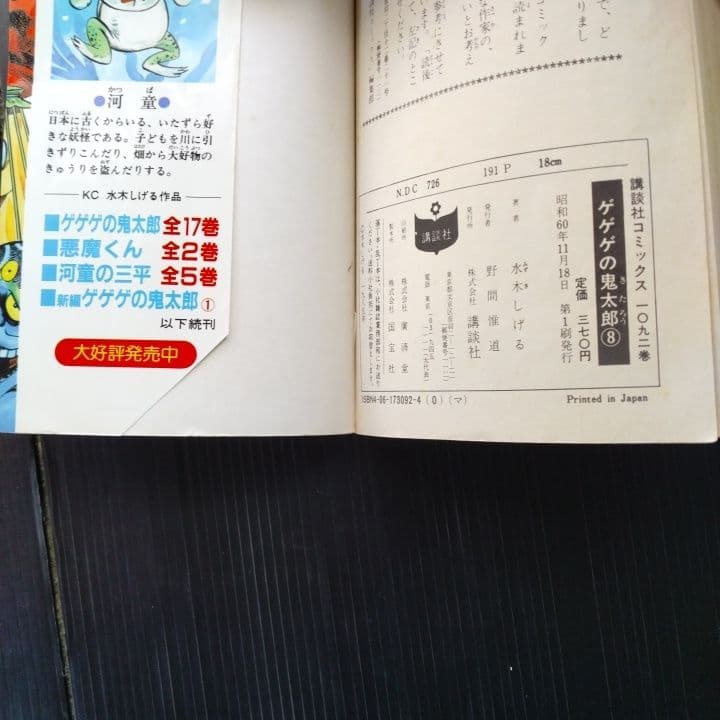 河童
かつぱ
日本に古くからいる、いたずら好
きな妖怪である。子どもを川に引
きずりこんだり、畑から大好物の
きゅうりを盗んだりする。
KC 水木しげる作品
■ゲゲゲの鬼太郎 全17巻
■悪魔くん 全2巻
■河童の三平 全5巻
■新編ゲゲゲの鬼太郎①
以下続刊
大好評発売中
で、ど
りまし
コミック
読まれま
な作家の、
いとお考え
N.D.C 726 191P 18cm
講談社コミックス 一〇九二巻
ゲゲゲの鬼太郎⑧
きたろう
定価 三七〇円
昭和60年11月18日 第1刷発行
著者 水木しげる
みずき
発行者 野間惟道
発行所 株式会社 講談社
講談社
印刷所 株式会社 廣済堂
製本所 株式会社 国宝社
ISBN4-06-173092-4 (0) (マ)
Printed in Japan